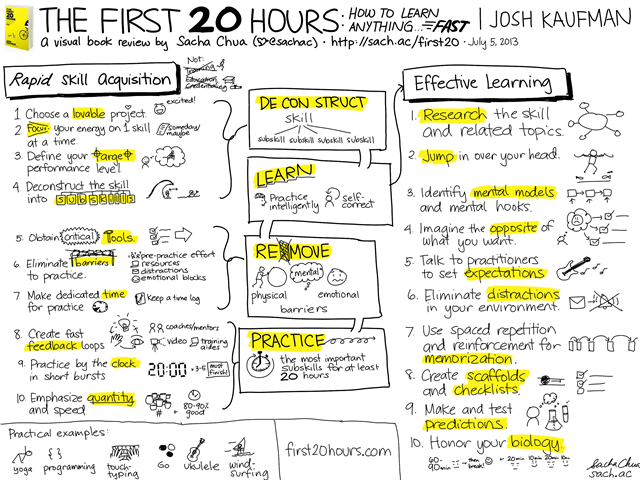 THE FIRST 20 HOURS: HOW TO LEARN ANYTHING... FAST | JOSH KAUFMAN
a visual book review by Sacha Chua (@sachac) • http://sach.ac/first20 • July 5, 2013
Rapid Skill Acquisition
Not:
Training
Education
Credentialing
1 Choose a lovable project.
excited!
2 Focus your energy on 1 skill
at a time.
someday/
maybe
3 Define your target
performance level.
4 Deconstruct the skill
into subskills
5. Obtain critical Tools.
6. Eliminate barriers
to practice.
pre-practice effort
resources
distractions
emotional blocks
7. Make dedicated time
for practice
Keep a time log
8. Create fast
feedback loops
coaches/mentors
video
training
aides
9. Practice by the clock
in short bursts
20:00
3-5
must
finish!
10. Emphasize quantity
and speed
#
80-90%
good
DECONSTRUCT
skill
subskill subskill subskill subskill
LEARN
Practice
intelligently
self-
correct
REMOVE
physical
mental
emotional
barriers
PRACTICE
the most important
subskills for at least
20 hours
Effective Learning
1. Research the skill
and related topics.
2. Jump in over your head.
3. Identify mental models
and mental hooks.
4. Imagine the opposite of
what you want.
5. Talk to practitioners
to set expectations
6. Eliminate distractions
in your environment.
7. Use spaced repetition
and reinforcement for
memorization.
8. Create scaffolds
and checklists.
9. Make and test
predictions.
10. Honor your biology.
60-
90min
then
break!
20min 10min 20min 10m
Practical examples:
yoga
{ }
programming
touch-
typing
Go
Ukulele
wind-
surfing
first20hours.com
Sacha Chua
sach.ac